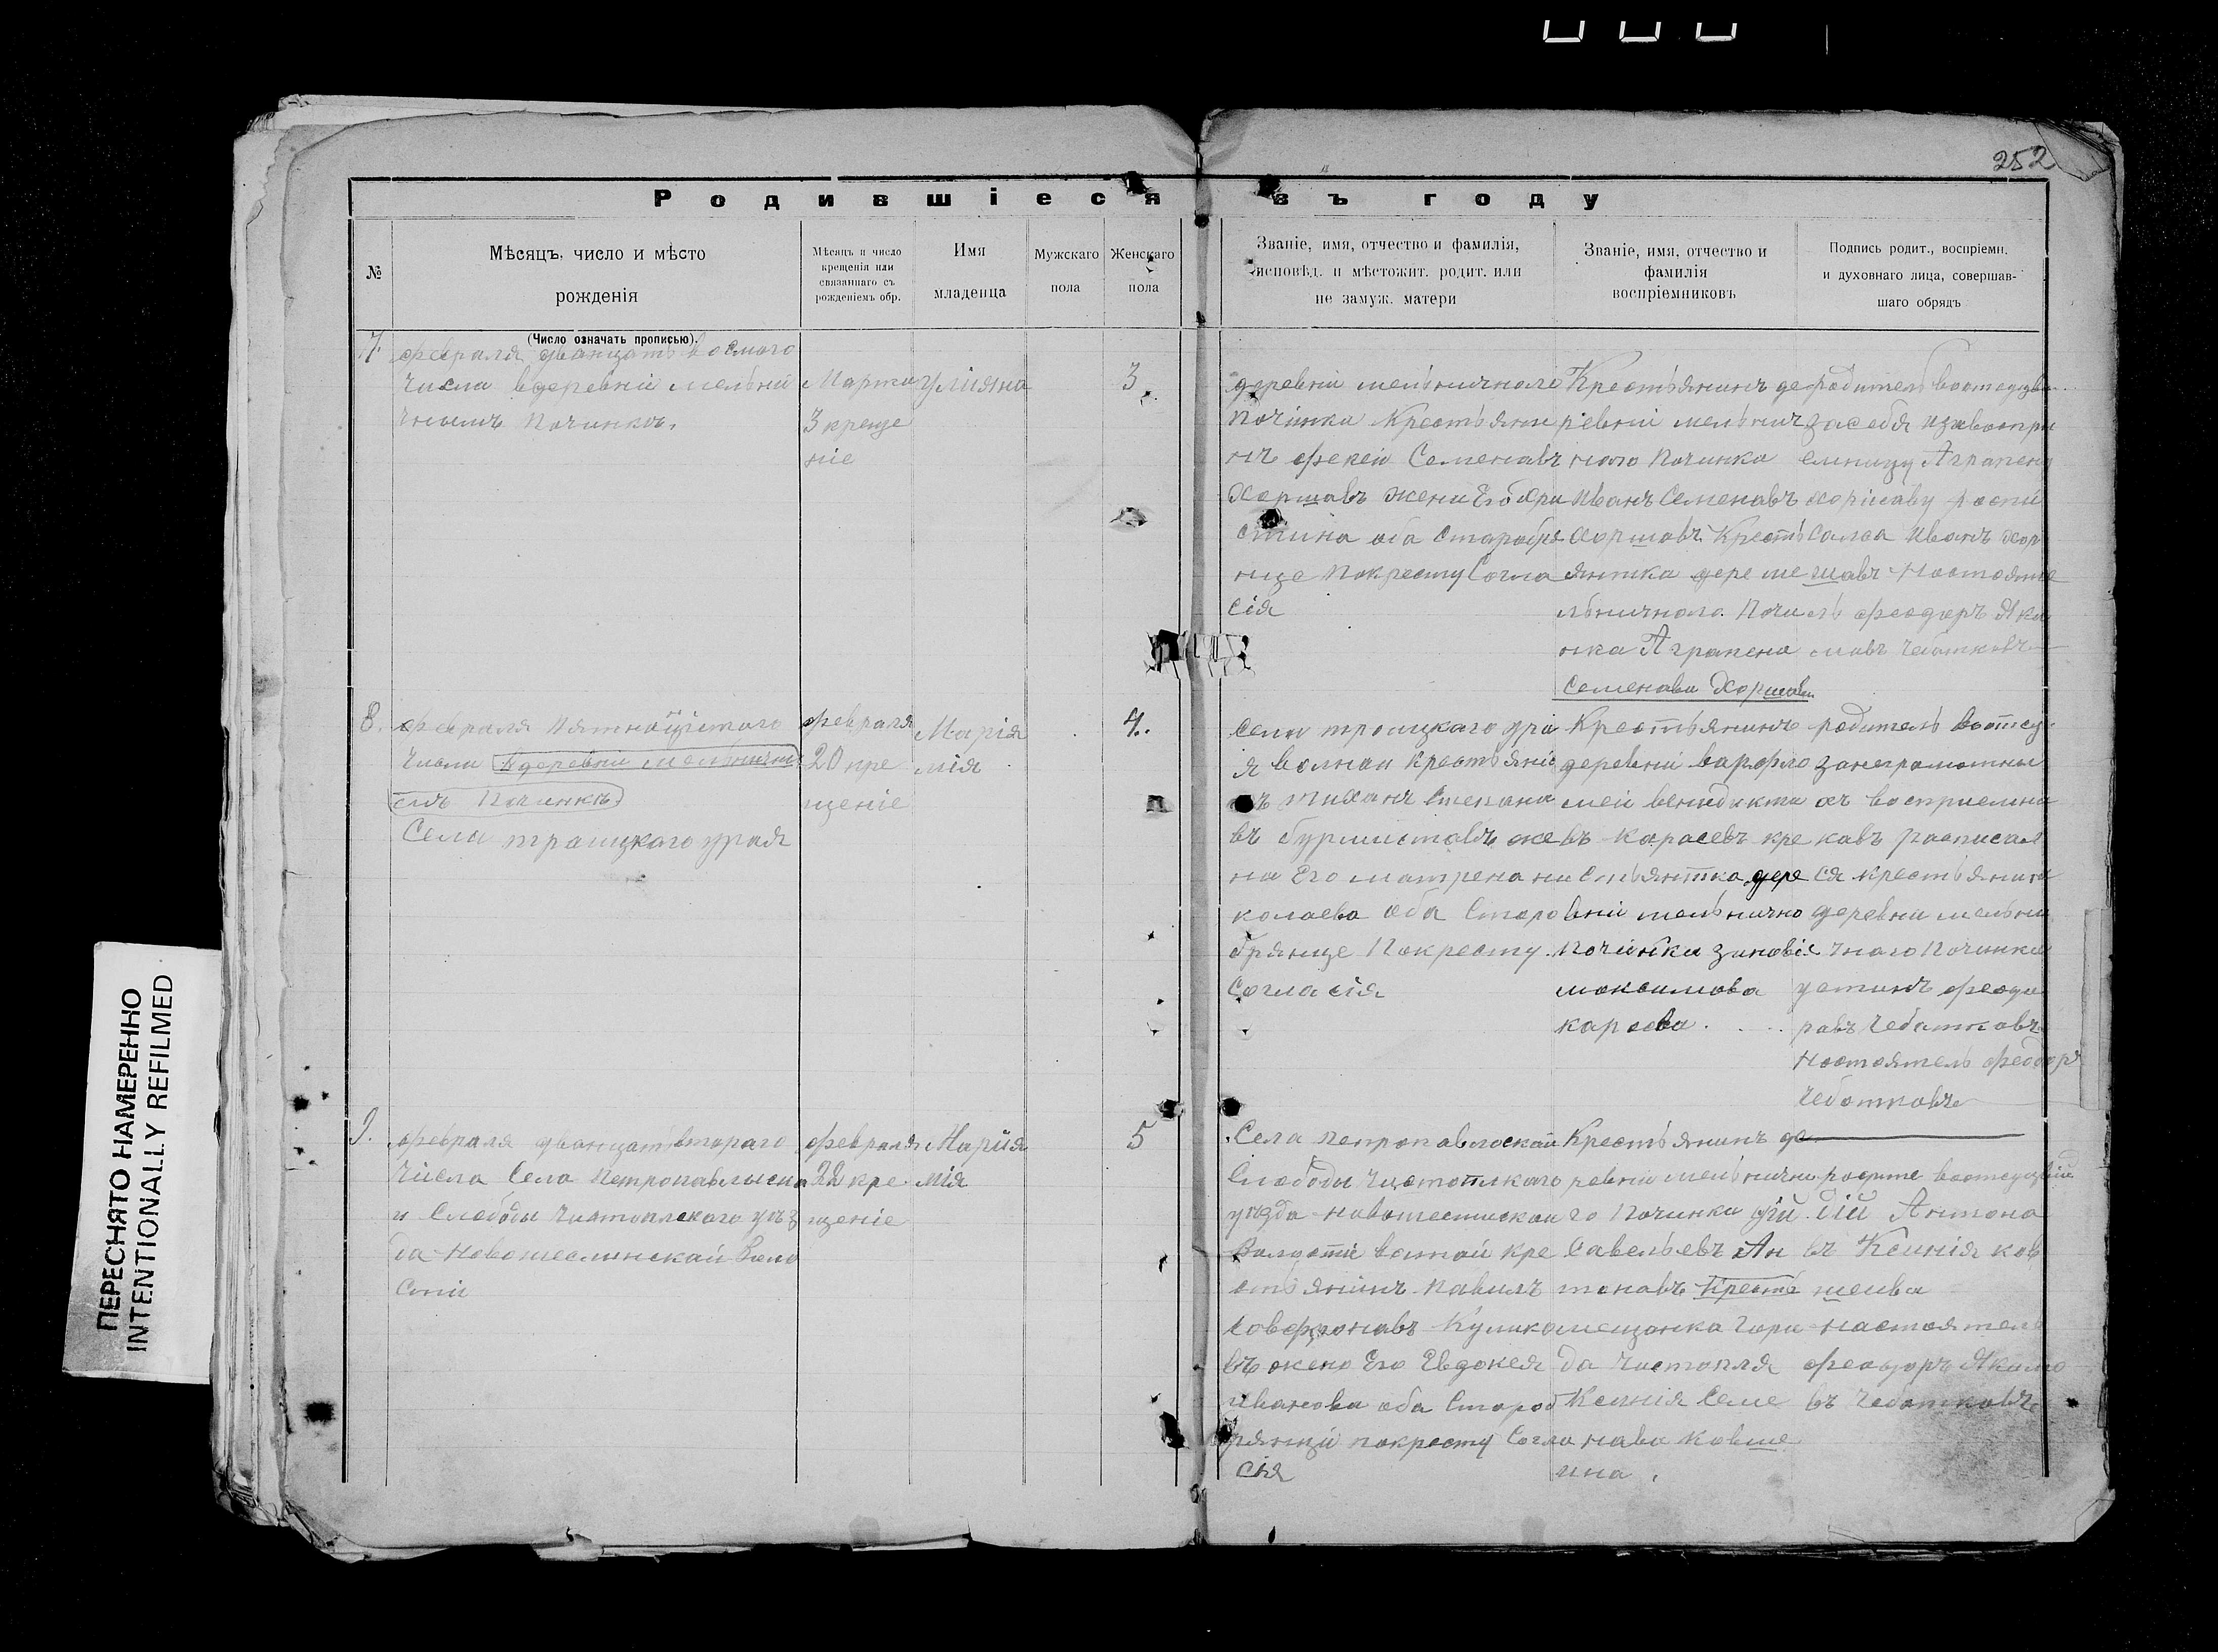 252
Родившіеся въ году
№
Мѣсяцъ, число и мѣсто
рожденія
Мѣсяцъ и число
крещенія или
связаннаго съ
рожденіемъ обр.
Имя
младенца
Мужскаго
пола
Женскаго
пола
Званіе, имя, отчество и фамилія,
исповѣд. и мѣстожит. родит. или
не замуж. матери
Званіе, имя, отчество и
фамилія
воспріемниковъ
Подпись родит., воспріемн.
и духовнаго лица, совершав-
шаго обрядъ
(Число означать прописью).
7.
февраля дванцать восмого
числа вдеревніи мельни
чнымъ Починкъ.
Марта
3 креще
ніе
Улияна
3
деревніи мельничнаго
Починка Крестьяни
нъ Семенавъ
Хоршавъ жена Его Хри
стина оба Старобря
нце Покресту Согла
сія
Крестьянинъ де
ревніи мельнич
ного Починка
Иванъ Семенавъ
Хоршавъ Кресть
янтка дере ме
льничного Почи
нка Аграпена
Семенава Хоршава
родитель
за себя
Аграпену
Иванъ Хор
шавъ Настояте
ль феодоръ Яки
мавъ Чеботковъ
8.
февраля Пятнацетого
числа вдеревніи мельнични
емъ Починкъ
Села траицкаго урая
февраля
20 кре
щеніе
Марія
мія
4.
Села троицкаго ура
я волнаи Крестьяни
нъ Степана
въ бурмистовъ же
на Его матрена ни
колаева оба Старо
брянце Покресту
Согласія
Крестьянинъ
деревніи варфло
меи венидикта
въ Карасевъ кре
стьянтка дере
вніи мельнично
Починка Зиновіе
максимова
карсева
родитель
занеграмотны
хъ восприемни
кавъ расписал
ся крестьянин
деревни мельни
чного Починка
устинъ феодо
равъ Чеботковъ
Настоятель феодоръ
Чеботковъ
9.
февраля дванцать втораго
числа Села Петропавлыска
и Слободы Чистоплскаго уѣз
да Новошешминскай Вало
сти
февраля
22 кре
щеніе
Марія
мія
5
Села петропавлоскаи
Слободы Чистоплкаго
уѣзда Новошешмискаи
Валости кре
стьянинъ Павилъ
Совфронавъ Кулика
въ жена Его Евдокея
Иванова оба Староб
рянци покресту Согла
сия
Крестьянинъ де
ревни мельнични
го Починка
Савельевъ Ан
тонавъ Кресть
мещанка горо
да Чистопля
Ксинія Семе
нава Ковше
ина.
Антона
въ Ксинія Ков
шеива
настоятел
феодоръ Якимо
въ Чеботковъ
ПЕРЕСНЯТО НАМЕРЕННО
INTENTIONALLY REFILMED